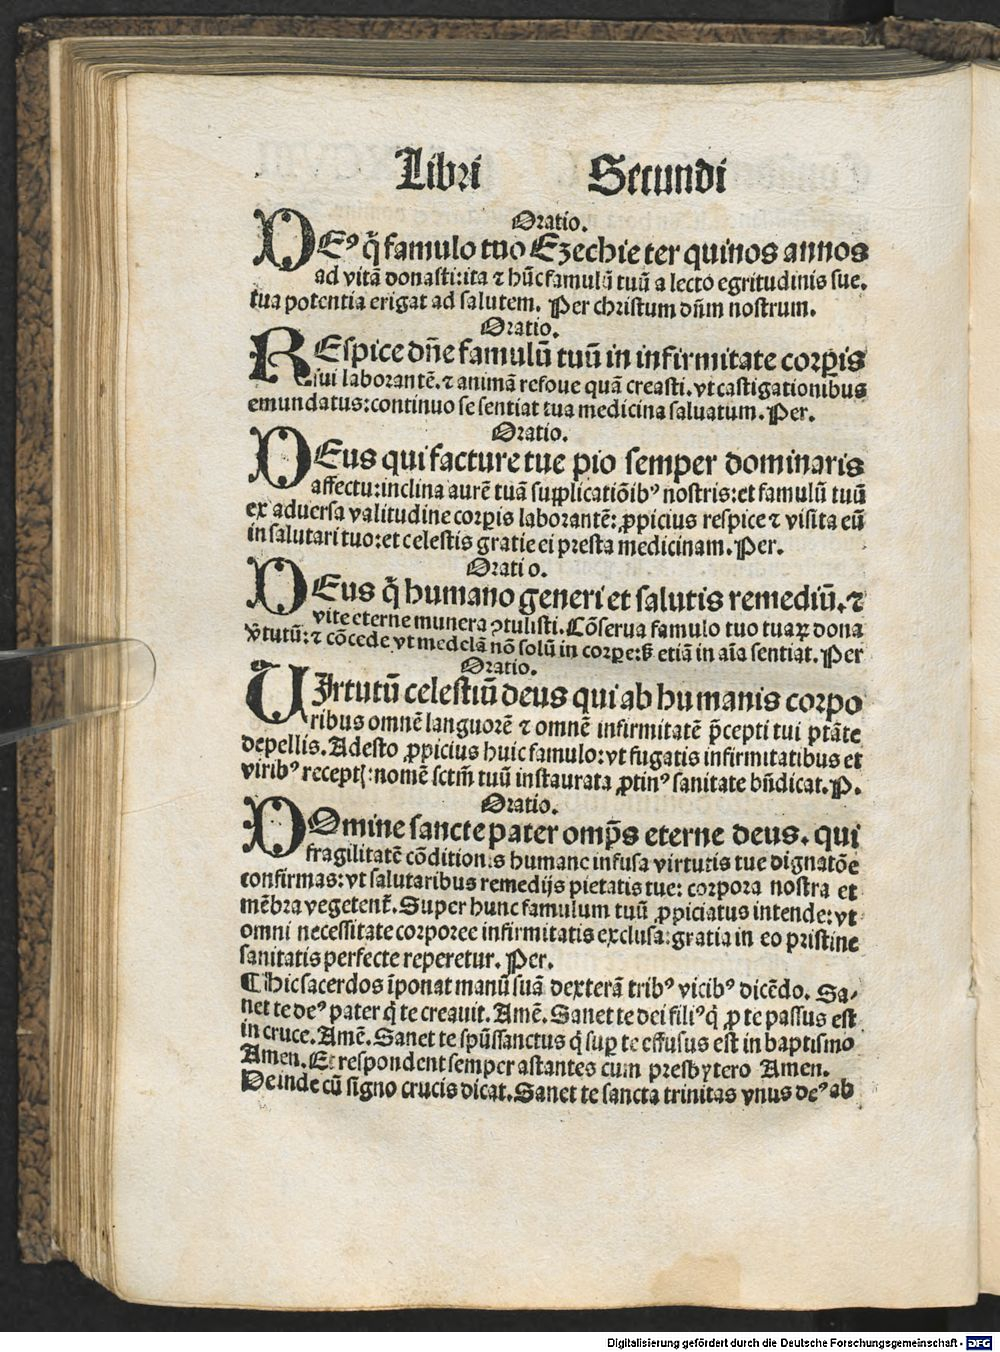 Libri Secundi
Oratio.
DEꝰ q̄ famulo tuo Ezechie ter quinos annos
ad vitā donasti:ita ⁊ hūc famulū tuū a lecto egritudinis sue.
tua potentia erigat ad salutem. Per christum dn̄m nostrum.
Oratio.
REspice dn̄e famulū tuū in infirmitate corꝑis
sui laborantē.⁊ animā refoue quā creasti.vt castigationibus
emundatus:continuo se sentiat tua medicina saluatum. Per.
Oratio.
DEus qui facture tue pio semper dominaris
affectu:inclina aurē tuā supplicatiōibꝰ nostris:et famulū tuū
ex aduersa valitudine corꝑis laborantē: ꝓpicius respice ⁊ visita eū
in salutari tuo:et celestis gratie ei presta medicinam. Per.
Oratio.
DEus q̄ humano generi et salutis remediū.⁊
vite eterne munera ꝯtulisti. Cōserua famulo tuo tuaꝝ dona
v̓tutū:⁊ cōcede vt medelā nō solū in corꝑe:sꝫ etiā in aīa sentiat. Per
Oratio.
UIrtutū celestiū deus qui ab humanis corpo
ribus omnē languorē ⁊ omnē infirmitatē p̄cepti tui ptāte
depellis. Adesto ꝓpicius huic famulo:vt fugatis infirmitatibus et
viribꝰ receptꝭ:nomē sctm̄ tuū instaurata ꝓtinꝰ sanitate bn̄dicat. P.
Oratio.
DOmine sancte pater omp̄s eterne deus. qui
fragilitatē cōditionis humane infusa virtutis tue dignatōe
confirmas:vt salutaribus remedijs pietatis tue: corpora nostra et
mēbra vegetent̄. Super hunc famulum tuū ꝓpiciatus intende:vt
omni necessitate corporee infirmitatis exclusa:gratia in eo pristine
sanitatis perfecte reperetur. Per.
¶Hic sacerdos īponat manū suā dexterā tribꝰ vicibꝰ dicēdo. Sa⸗
net te deꝰ pater q̄ te creauit. Amē. Sanet te dei filiꝰ q̄ ꝓ te passus est
in cruce. Amē. Sanet te spūssanctus q̄ suꝑ te effusus est in baptismo
Amen. Et respondent semper astantes cum presbytero Amen.
Deinde cū signo crucis dicat. Sanet te sancta trinitas vnus deꝰ ab
Digitalisierung gefördert durch die Deutsche Forschungsgemeinschaft - DFG